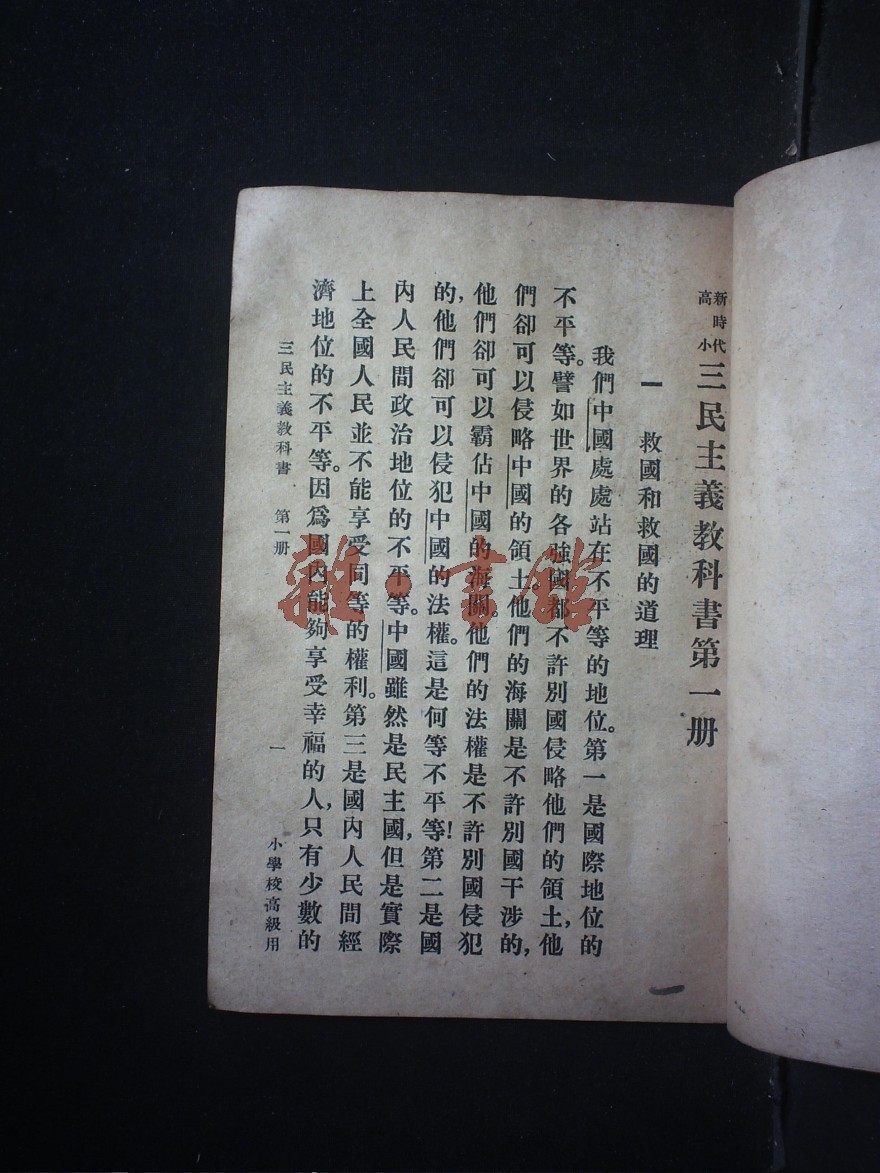 新時代
高小
三民主義教科書第一册
一 救國和救國的道理
我們中國處處站在不平等的地位。第一是國際地位的
不平等。譬如世界的各強國都不許別國侵略他們的領土,他
們卻可以侵略中國的領土。他們的海關是不許別國干涉的,
他們卻可以霸佔中國的海關。他們的法權是不許別國侵犯
的,他們卻可以侵犯中國的法權。這是何等不平等!第二是國
內人民間政治地位的不平等。中國雖然是民主國,但是實際
上全國人民並不能享受同等的權利。第三是國內人民間經
濟地位的不平等。因爲國內能夠享受幸福的人,只有少數的
三民主義教科書 第一册 一 小學校高級用
雜·书館